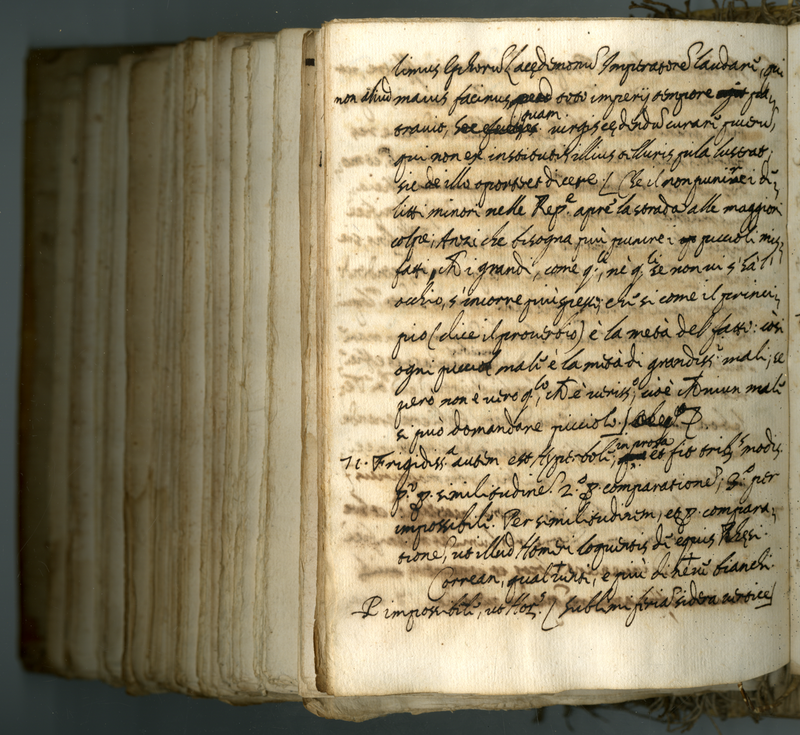 limus Ephorus Lacedemoniu' Imperatore' laudari', qui
non aliud maius facinus toto imperij tempore pa,
trauit, quam virgis cędendu' curari' pueru',
qui non ex institutis illius
sic de illo oportet dicere. [ Che il non punire i de,
litti minori nelle Rep.e apre la strada alle maggiori
colpe; Anzi che bisogna più punire i piccioli mis,
fatti, ch' i grandi, come q.li, nè q.li se non vi s'hà l'
occhio, s'incorre più spesso; e si come il princi,
pio (dice il prouerbio) è la metà del fatto: così
ogni piccio' mal' è la mità di grandiss.i mali; se
però non è vero q.lo, ch' è veriss.o, cioè ch' niun mal'
si può domandare picciolo.]
71. Frigidiss.a autem est Hyperbole, in prosa et fit trib.s modis.
p.o p. similitudine'. 2.o p. comparatione'; 3.o per
impossibili'. Per similitudinem, et p. compara,
tione', ut illud Homeri loquentis de equis Rhesi.
Correan, qual venti, e più di neue bianchi.
P impossibile, ut Hor. [ Sublimi feria' sidera vertice]